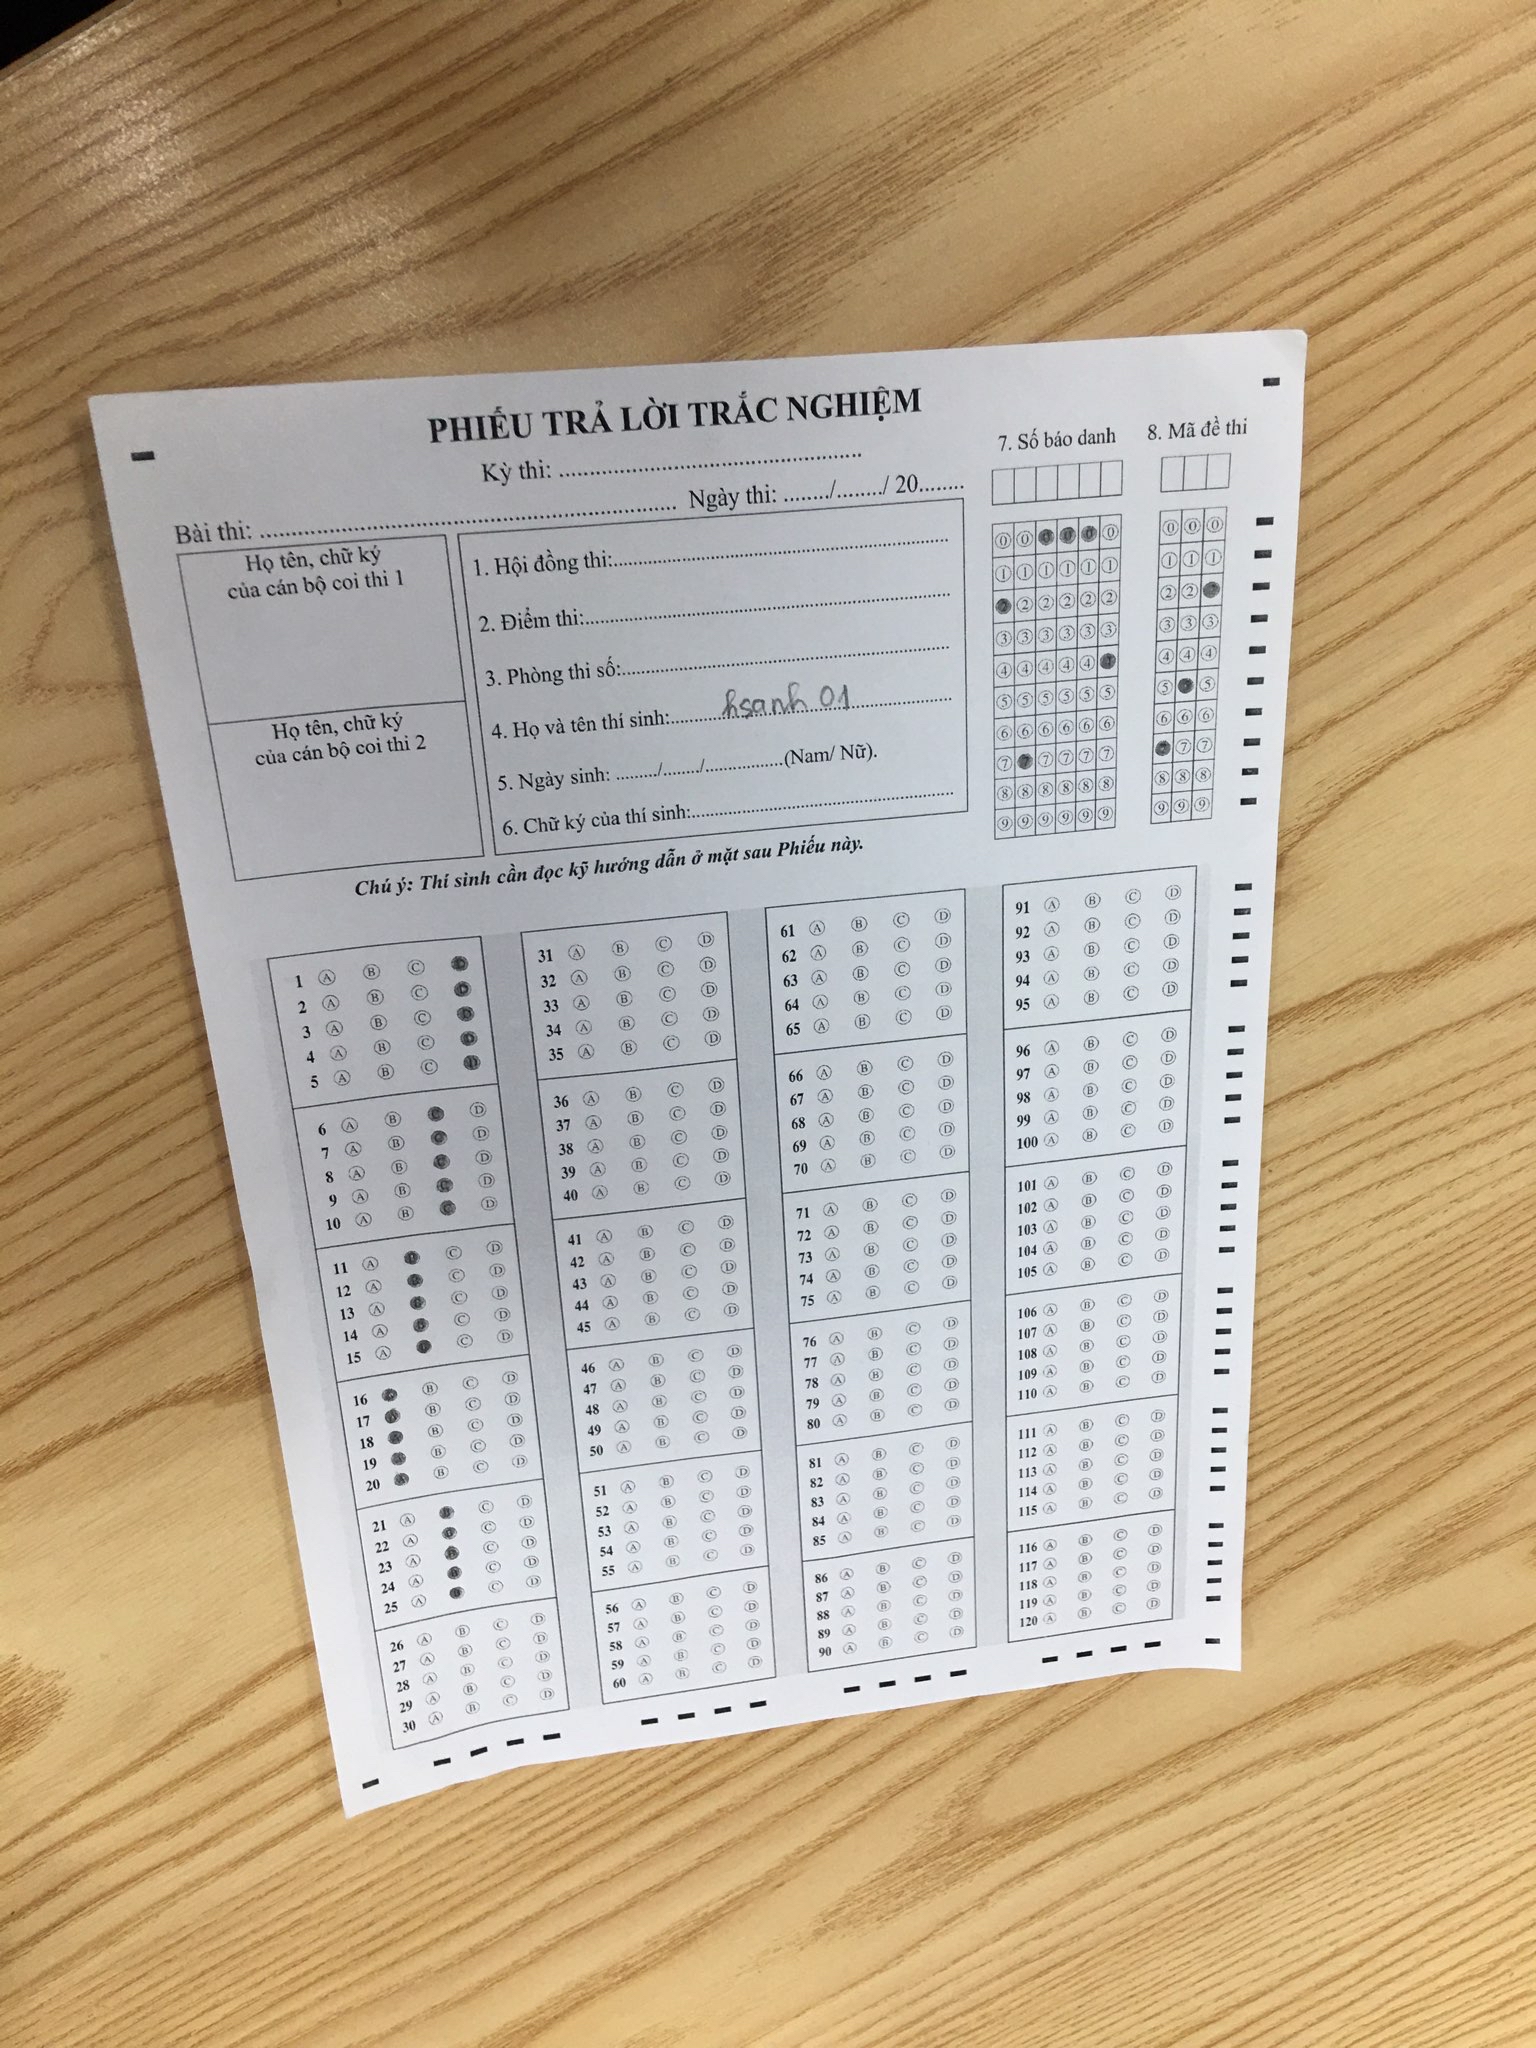 PHIẾU TRẢ LỜI TRẮC NGHIỆM
Kỳ thi: ................................................
Bài thi: .................................................................. Ngày thi: ......../......../ 20........
Họ tên, chữ ký
của cán bộ coi thi 1
Họ tên, chữ ký
của cán bộ coi thi 2
1. Hội đồng thi:......................................................
2. Điểm thi:...........................................................
3. Phòng thi số:.....................................................
4. Họ và tên thí sinh: hsanh 01
5. Ngày sinh: ......./......./..............(Nam/ Nữ).
6. Chữ ký của thí sinh:...........................................
7. Số báo danh
8. Mã đề thi
0 0 0 0 0 0 0 0 0
1 1 1 1 1 1 1 1 1
2 2 2 2 2 2 2 2 2
3 3 3 3 3 3 3 3 3
4 4 4 4 4 4 4 4 4
5 5 5 5 5 5 5 5 5
6 6 6 6 6 6 6 6 6
7 7 7 7 7 7 7 7 7
8 8 8 8 8 8 8 8 8
9 9 9 9 9 9 9 9 9
Chú ý: Thí sinh cần đọc kỹ hướng dẫn ở mặt sau Phiếu này.
1 A B C D
2 A B C D
3 A B C D
4 A B C D
5 A B C D
6 A B C D
7 A B C D
8 A B C D
9 A B C D
10 A B C D
11 A B C D
12 A B C D
13 A B C D
14 A B C D
15 A B C D
16 A B C D
17 A B C D
18 A B C D
19 A B C D
20 A B C D
21 A B C D
22 A B C D
23 A B C D
24 A B C D
25 A B C D
26 A B C D
27 A B C D
28 A B C D
29 A B C D
30 A B C D
31 A B C D
32 A B C D
33 A B C D
34 A B C D
35 A B C D
36 A B C D
37 A B C D
38 A B C D
39 A B C D
40 A B C D
41 A B C D
42 A B C D
43 A B C D
44 A B C D
45 A B C D
46 A B C D
47 A B C D
48 A B C D
49 A B C D
50 A B C D
51 A B C D
52 A B C D
53 A B C D
54 A B C D
55 A B C D
56 A B C D
57 A B C D
58 A B C D
59 A B C D
60 A B C D
61 A B C D
62 A B C D
63 A B C D
64 A B C D
65 A B C D
66 A B C D
67 A B C D
68 A B C D
69 A B C D
70 A B C D
71 A B C D
72 A B C D
73 A B C D
74 A B C D
75 A B C D
76 A B C D
77 A B C D
78 A B C D
79 A B C D
80 A B C D
81 A B C D
82 A B C D
83 A B C D
84 A B C D
85 A B C D
86 A B C D
87 A B C D
88 A B C D
89 A B C D
90 A B C D
91 A B C D
92 A B C D
93 A B C D
94 A B C D
95 A B C D
96 A B C D
97 A B C D
98 A B C D
99 A B C D
100 A B C D
101 A B C D
102 A B C D
103 A B C D
104 A B C D
105 A B C D
106 A B C D
107 A B C D
108 A B C D
109 A B C D
110 A B C D
111 A B C D
112 A B C D
113 A B C D
114 A B C D
115 A B C D
116 A B C D
117 A B C D
118 A B C D
119 A B C D
120 A B C D